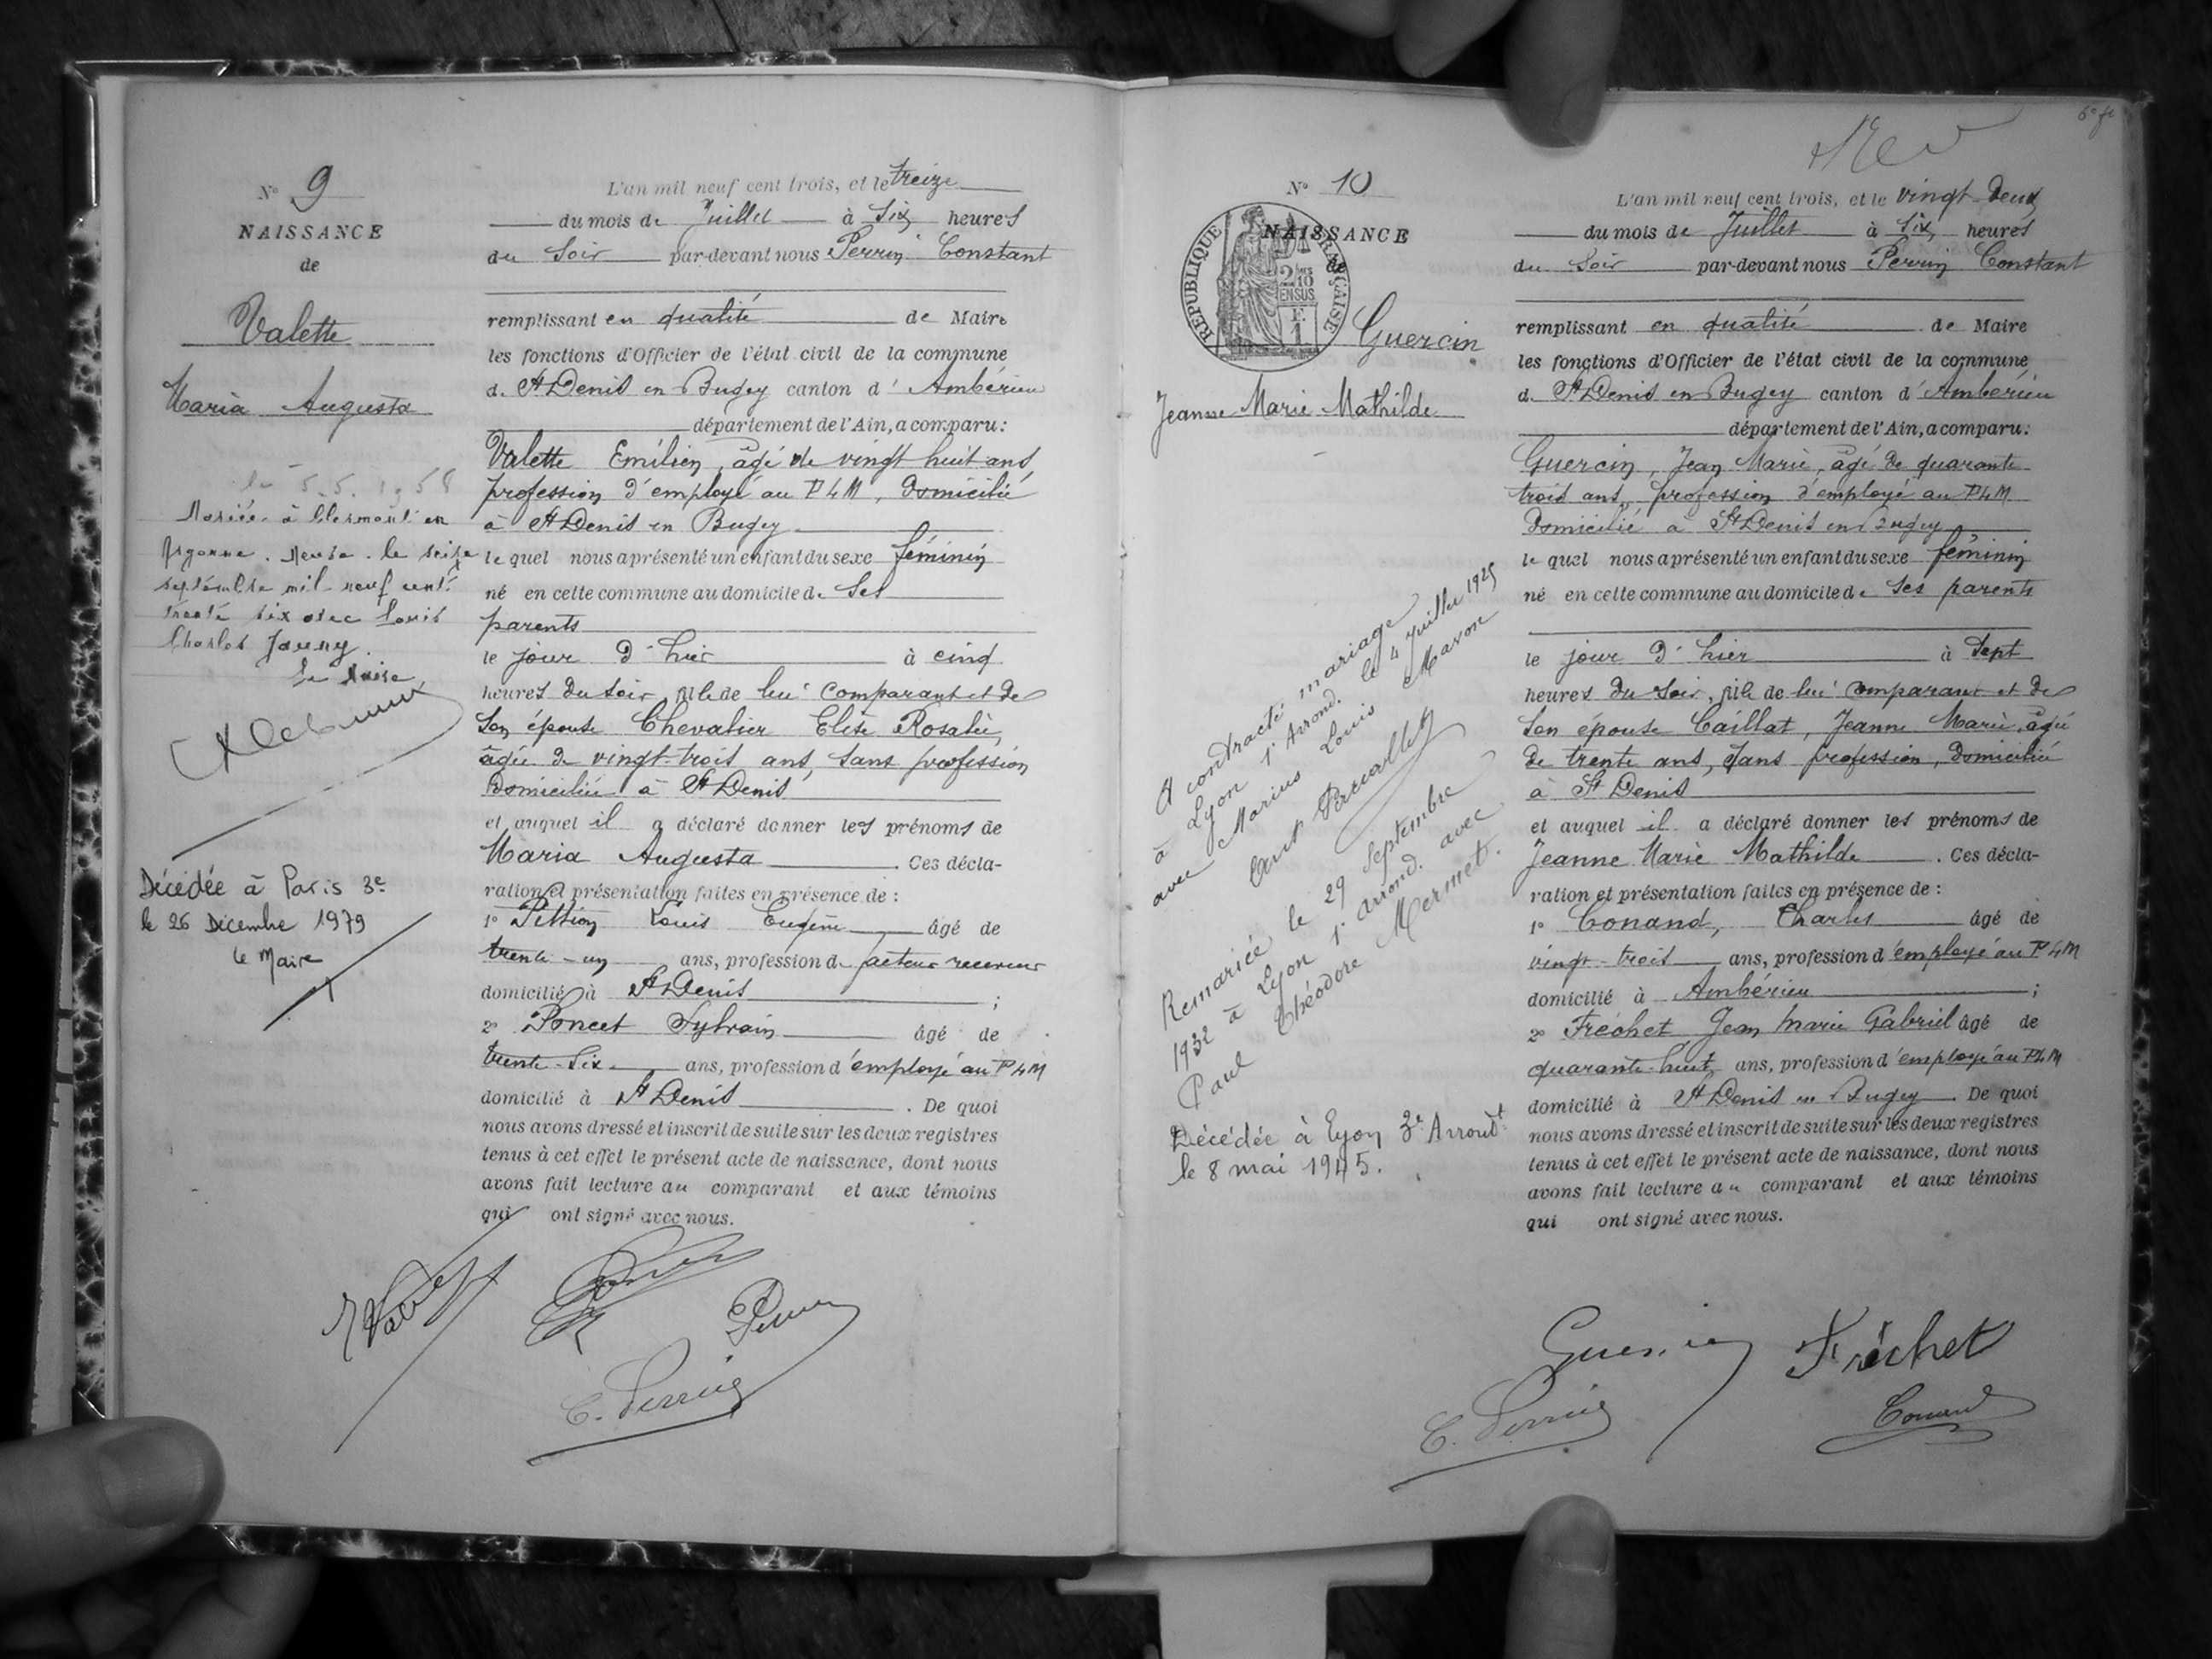 N° 9
NAISSANCE
de
Valette
Maria Augusta
Mariée à Clermont en
Argonne. Meuse. le seize
septembre mil neuf cent
trente six avec Louis
Charles
Le Maire
Décédée à Paris 3e
le 26 Décembre 1979
le Maire
L'an mil neuf cent trois, et le treize
du mois de Juillet à Six heures
du Soir par-devant nous Perrin Constant
remplissant en qualité de Maire
les fonctions d'Officier de l'état civil de la commune
d. St Denis en Bugey canton d' Ambérieu
département de l'Ain, a comparu:
Valette Emilien, âgé de vingt huit ans
profession d'employé au PLM, domicilié
à St Denis en Bugey
le quel nous a présenté un enfant du sexe féminin
né en cette commune au domicile de Ses
parents
le jour d'hier à cinq
heures du soir, fille de lui comparant et de
Son épouse Chevalier Elise Rosalie,
âgée de vingt-trois ans, sans profession
domiciliée à St Denis
et auquel il a déclaré donner les prénoms de
Maria Augusta. Ces décla-
ration et présentation faites en présence de:
1° Louis Eugène âgé de
trente-un ans, profession de facteur receveur
domicilié à St Denis;
2° Poncet Sylvain âgé de
trente-six ans, profession d'employé au PLM
domicilié à St Denis. De quoi
nous avons dressé et inscrit de suite sur les deux registres
tenus à cet effet le présent acte de naissance, dont nous
avons fait lecture au comparant et aux témoins
qui ont signé avec nous.
C. Perrin
N° 10
NAISSANCE
de
RÉPUBLIQUE FRANÇAISE
2/10 EN SUS
Guercin
Jeanne Marie Mathilde
A contracté mariage
à Lyon 1r Arrond. le 4 juillet 1925
avec Marius Louis Mavon
Remariée le 29 Septembre
1932 à Lyon 1r arrond. avec
Paul Théodore Mermet.
Décédée à Lyon 3e Arrondt
le 8 mai 1945.
L'an mil neuf cent trois, et le vingt-deux
du mois de Juillet à Six heures
du Soir par-devant nous Perrin Constant
remplissant en qualité de Maire
les fonctions d'Officier de l'état civil de la commune
d. St Denis en Bugey canton d'Ambérieu
département de l'Ain, a comparu:
Guercin, Jean Marie, âgé de quarante
trois ans, profession d'employé au PLM
domicilié à St Denis en Bugey
le quel nous a présenté un enfant du sexe féminin
né en cette commune au domicile de Ses parents
le jour d'hier à Sept
heures du soir, fille de lui comparant et de
Son épouse Caillat, Jeanne Marie, âgée
de trente ans, sans profession, domiciliée
à St Denis
et auquel il a déclaré donner les prénoms de
Jeanne Marie Mathilde. Ces décla-
ration et présentation faites en présence de:
1° Conand, Charles âgé de
vingt-trois ans, profession d'employé au PLM
domicilié à Ambérieu;
2° Fréchet, Jean Marie Gabriel âgé de
quarante-huit ans, profession d'employé au PLM
domicilié à St Denis en Bugey. De quoi
nous avons dressé et inscrit de suite sur les deux registres
tenus à cet effet le présent acte de naissance, dont nous
avons fait lecture au comparant et aux témoins
qui ont signé avec nous.
Guercin Fréchet
C. Perrin Conand